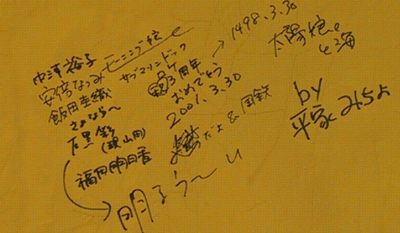 中澤裕子
安倍なつみ
飯田圭織
さよなら〜
石黒彩
福田明日香
モーニング娘
サブマリンドック
3周年
おめでとう
2001.3.30
だよ&
明るう〜い
→1998.3.30
太陽娘。
と海
by
平家みちよ